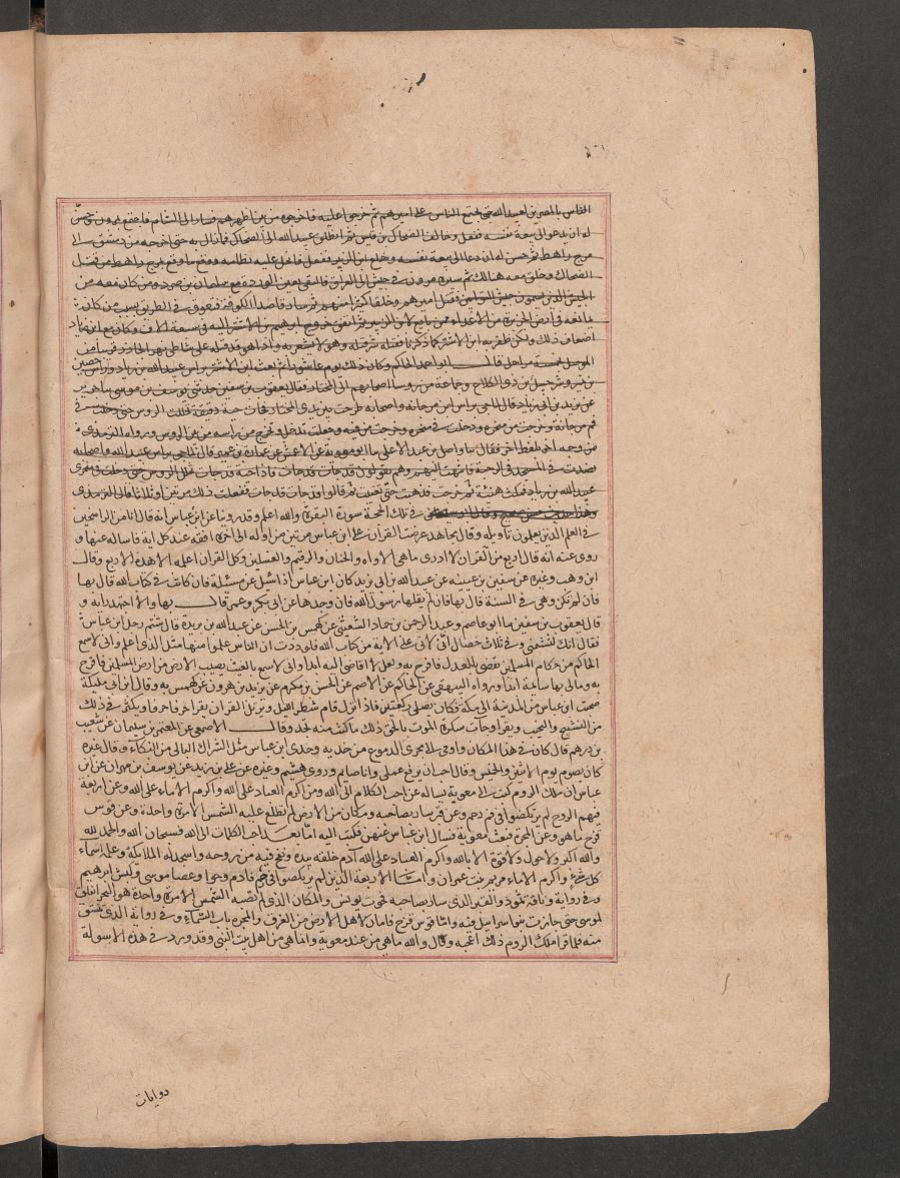 الناس بالمصرين لعبيد الله حتى يجتمع الناس على امير هم ثم خرجوا عليه فاخرجوه من بين اظهرهم فصار الى الشام فاجتمع بمروان وحسن
له ان يدعو الى بيعة نفسه ففعل وخالف الضحاك بن قيس ثم انطلق عبيد الله الى الضحاك فما زال به حتى اخرجه من دمشق الى
مرج راهط ثم حسن له ان دعا الى بيعة نفسه وخلع ابن الزبير ففعل فانحل عليه نظامه ووقع ما وقع بمرج راهط من قتل
الضحاك وخلق معه هنالك ثم سيره مروان في جيش الى العراق فالتقى بعين الوردة مع سليمان بن صرد ومن كان معه من
الجيش الذين يسمون جيش التوابين فقتل اميرهم وخلقا كثيرا منهم ثم سار قاصدا الكوفة فتعوق في الطريق بسبب من كان
يمانعه في ارض الجزيرة من الاعداء ممن بايع لابن الزبير ثم اتفق خروج ابرهيم بن الاشتر اليه في سبعة الاف وكان مع ابن زياد
اضعاف ذلك ولكن ظفر به ابن الاشتر كما ذكرنا فقتله شر قتلة وهو لا يشعر به واذا هو قد قتله على شاطئ نهر الخازر قريبا من
الموصل بخمسة مراحل قال ابو احمد الحاكم وكان ذلك يوم عاشوراء ثم بعث ابن الاشتر براس عبيد الله بن زياد وراس حصين
بن نمير وشرحبيل بن ذي الكلاع وجماعة من روسا اصحابهم الى المختار فقال يعقوب بن سفين حدثني يوسف بن موسى ما جرير
عن يزيد بن ابي زياد قال لما جي براس ابن مرجانه واصحابه طرحت بين يدي المختار فجات حية دقيقة تخللت الروس حتى دخلت في
فم مرجانة وخرجت من منخره ودخلت في منخره وخرجت من فيه وجعلت تدخل وتخرج من راسه من بين الروس ورواه الترمذي
من وجه اخر بلفظ اخر فقال ما واصل بن عبد الاعلى ما ابو معوية عن الاعمش عن عمارة بن عمير قال لما جي براس عبيد الله واصحابه
نضدت في المسجد في الرحبة فانتهيت اليهم وهم يقولون قد جات قد جات فاذا حية قد جات تخلل الروس حتى دخلت في منخري
عبيد الله بن زياد فمكثت هنية ثم خرجت فذهبت حتى تغيبت ثم قالوا قد جات قد جات ففعلت ذلك مرتين او ثلاثا قال الترمذي
وهذا حديث حسن صحيح في تلك الحجة سورة البقرة والله اعلم وقد روينا عن ابن عباس انه قال انا من الراسخين
في العلم الذين يعلمون تاويله وقال مجاهد عرضت القرآن على ابن عباس مرتين من اوله الى اخره اقفه عند كل اية فاساله عنها و
روى عنه انه قال اربع من القرآن لا ادري ما هي الاواه والحنان والرقيم والغسلين وكل القرآن اعلمه الا هذه الاربع وقال
ابن وهب وغيره عن سفين بن عيينه عن عبيد الله بن ابي يزيد كان ابن عباس اذا سئل عن مسئلة فان كانت في كتاب الله قال بها
فان لم تكن وهي في السنة قال بها فان لم يقلها رسول الله فان وجدها عن ابي بكر وعمر قال بها والا اجتهد رايه و
قال يعقوب بن سفين ما ابو عاصم وعبد الرحمن بن حماد الشعيثي عن كهمس بن الحسن عن عبد الله بن بريدة قال شتم رجل ابن عباس
فقال انك لتشتمني وفي ثلاث خصال اني لاتي على الاية من كتاب الله فلوددت ان الناس علموا منها مثل الذي اعلم واني لاسمع
الحاكم من حكام المسلمين يقضي بالعدل فافرح به ولعلي لا اقاضي اليه ابدا واني لاسمع بالغيث يصيب الارض من ارض المسلمين فافرح
به ومالي بها سايمة ابدا ورواه البيهقي عن الحاكم عن الاصم عن الحسن بن مكرم عن يزيد بن هرون عن كهمس به وقال ابن ابي مليكة
صحبت ابن عباس من المدينة الى مكة فكان يصلي ركعتين فاذا نزل قام شطر الليل ويرتل القرآن يقرا حرفا حرفا ويكثر في ذلك
من النشيج والنحيب ويقرا وجات سكرة الموت بالحق ذلك ما كنت منه تحيد وقال الاصمعي عن المعتمر بن سليمان عن شعيب
بن درهم قال كان في هذا المكان واومى الى مجرى الدموع من خديه وخدي ابن عباس مثل الشراك البالي من البكاء وقال غيره
كان يصوم يوم الاثنين والخميس وقال احب ان يرفع عملي وانا صايم وروى هشيم وغيره عن علي بن زيد عن يوسف بن مهران عن ابن
عباس ان ملك الروم كتب الى معوية يساله عن احب الكلام الى الله ومن اكرم العباد على الله واكرم الاماء على الله وعن اربعة
فيهم الروح لم يركضوا في رحم وعن قبر سار بصاحبه ومكان من الارض لم تطلع عليه الشمس الا مرة واحدة وعن قوس
قزح ما هو وعن المجرة فبعث معوية فسال ابن عباس عنهن فكتب اليه اما بعد احب الكلمات الى الله فسبحان الله والحمد لله
والله اكبر ولا حول ولا قوة الا بالله واكرم العباد على الله آدم خلقه بيده ونفخ فيه من روحه واسجد له الملايكة وعلمه اسماء
كل شيء واكرم الاماء مريم بنت عمران واما الاربعة الذين لم يركضوا في رحم فادم وحوا وعصا موسى وكبش ابرهيم
وفي رواية وناقة ثمود والقبر الذي سار بصاحبه حوت يونس والمكان الذي لم تصبه الشمس الا مرة واحدة هو البحر انفلق
لموسى حتى جازت بنو اسرايل فيه واما قوس قزح فامان لاهل الارض من الغرق والمجرة باب السماء وفي رواية الذي تنشق
منه فلما قرا ملك الروم ذلك اعجبه وقال والله ما هي من عند معوية وانما هي من اهل بيت النبي وقد ورد في هذه الاسولة
روايات